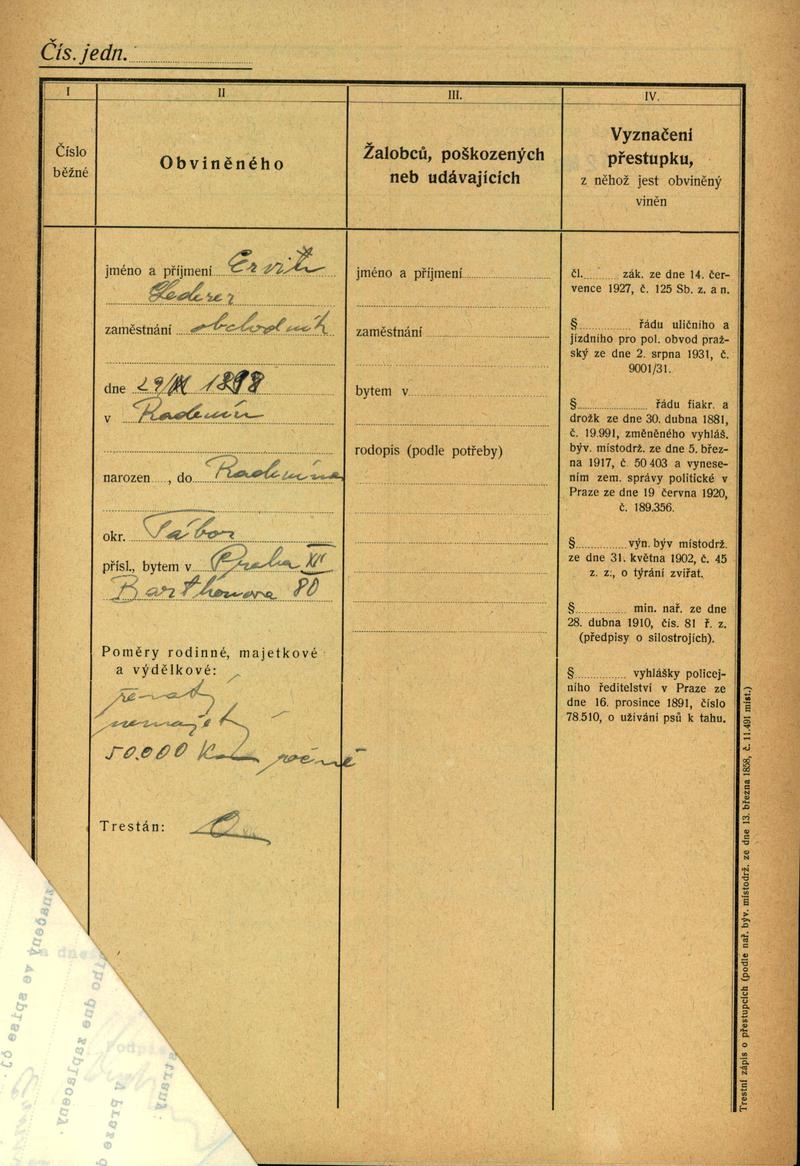 Čís. jedn.
I
Číslo
běžné
II
Obviněného
III.
Žalobců, poškozených
neb udávajících
IV.
Vyznačení
přestupku,
z něhož jest obviněný
viněn
jméno a příjmení Ervín
Lederer
zaměstnání obchodník
dne 1898
v Radenín
narozen, do Radenína
okr. Tábor
přísl., bytem v Praha XII
Barthouova 80
Poměry rodinné, majetkové
a výdělkové:
ženatý
50.000 Kč ročně
Trestán:
jméno a příjmení
zaměstnání
bytem v
rodopis (podle potřeby)
čl. zák. ze dne 14. čer-
vence 1927, č. 125 Sb. z. a n.
§ řádu uličního a
jízdního pro pol. obvod praž-
ský ze dne 2. srpna 1931, č.
9001/31.
§ řádu fiakr. a
drožk ze dne 30. dubna 1881,
č. 19.991, změněného vyhláš.
býv. místodrž. ze dne 5. břez-
na 1917, č. 50 403 a vynese-
ním zem. správy politické v
Praze ze dne 19 června 1920,
č. 189.356.
§ výn. býv místodrž.
ze dne 31. května 1902, č. 45
z. z., o týrání zvířat.
§ min. nař. ze dne
28. dubna 1910, čís. 81 ř. z.
(předpisy o silostrojích).
§ vyhlášky policej-
ního ředitelství v Praze ze
dne 16. prosince 1891, číslo
78.510, o užívání psů k tahu.
Trestní zápis o přestupcích (podle nař. býv. místodrž. ze dne 13. března 1858, č. 11.491 míst.)